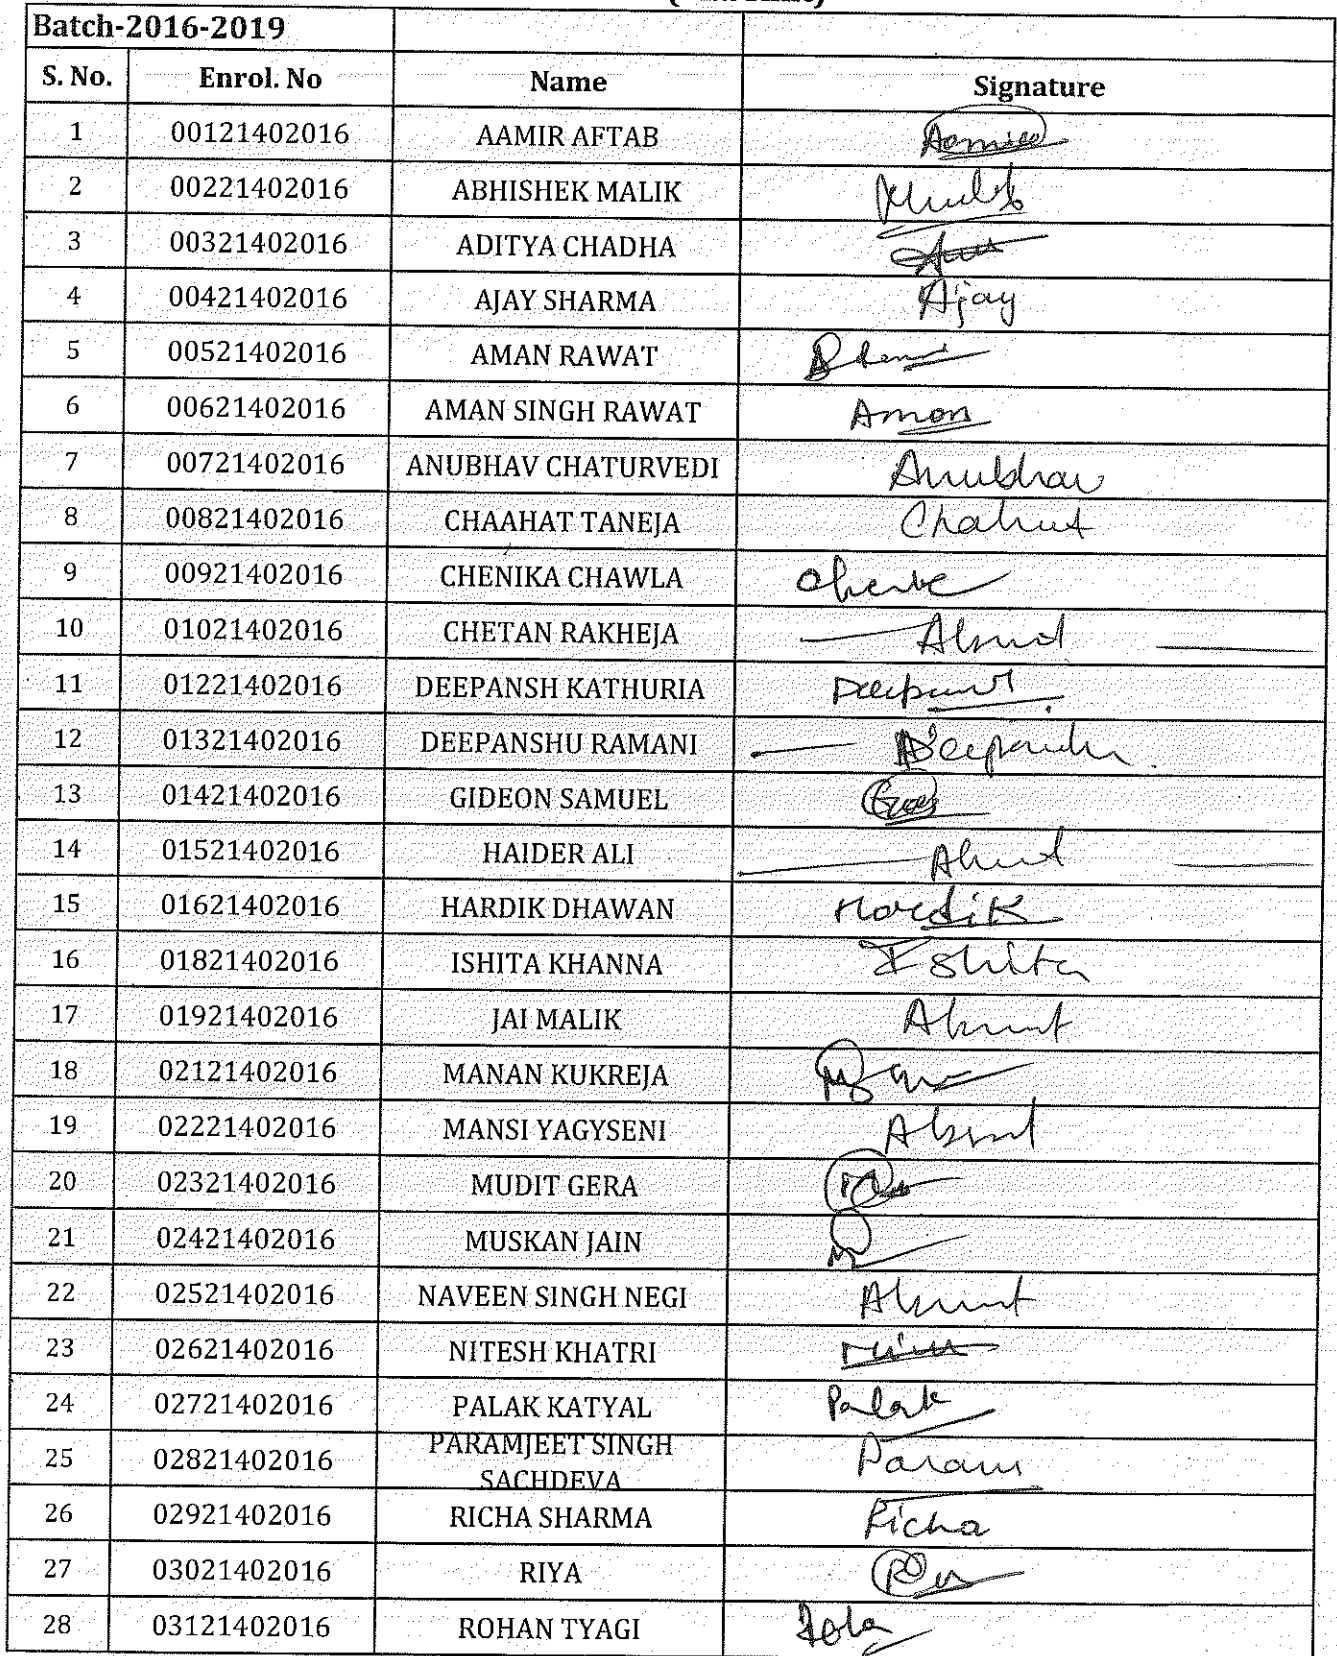 Batch-2016-2019
S. No. Enrol. No Name Signature
1 00121402016 AAMIR AFTAB Aamir
2 00221402016 ABHISHEK MALIK
3 00321402016 ADITYA CHADHA
4 00421402016 AJAY SHARMA Ajay
5 00521402016 AMAN RAWAT
6 00621402016 AMAN SINGH RAWAT Aman
7 00721402016 ANUBHAV CHATURVEDI Anubhav
8 00821402016 CHAAHAT TANEJA Chahat
9 00921402016 CHENIKA CHAWLA
10 01021402016 CHETAN RAKHEJA Absent
11 01221402016 DEEPANSH KATHURIA Deepansh
12 01321402016 DEEPANSHU RAMANI Deepanshu
13 01421402016 GIDEON SAMUEL
14 01521402016 HAIDER ALI Absent
15 01621402016 HARDIK DHAWAN Hardik
16 01821402016 ISHITA KHANNA Ishita
17 01921402016 JAI MALIK Absent
18 02121402016 MANAN KUKREJA
19 02221402016 MANSI YAGYSENI Absent
20 02321402016 MUDIT GERA
21 02421402016 MUSKAN JAIN
22 02521402016 NAVEEN SINGH NEGI Absent
23 02621402016 NITESH KHATRI
24 02721402016 PALAK KATYAL Palak
25 02821402016 PARAMJEET SINGH
SACHDEVA Param
26 02921402016 RICHA SHARMA Richa
27 03021402016 RIYA
28 03121402016 ROHAN TYAGI